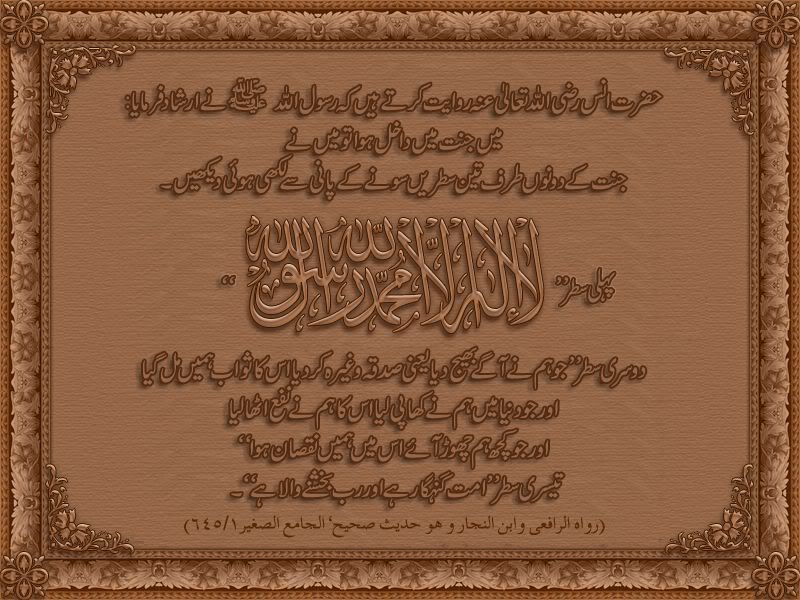 حضرت انس رضی اللہ تعالیٰ عنہ روایت کرتے ہیں کہ رسول اللہ ﷺ نے ارشاد فرمایا:
میں جنت میں داخل ہوا تو میں نے
جنت کے دونوں طرف تین سطریں سونے کے پانی سے لکھی ہوئی دیکھیں۔
پہلی سطر ”لا إله إلا الله محمد رسول الله“
دوسری سطر ”جو ہم نے آگے بھیج دیا یعنی صدقہ وغیرہ کر دیا اس کا ثواب ہمیں مل گیا
اور جو دنیا میں ہم نے کھا پی لیا اس کا ہم نے نفع اٹھا لیا
اور جو کچھ ہم چھوڑ آئے اس میں ہمیں نقصان ہوا“
تیسری سطر ”امت گنہگار ہے اور رب بخشنے والا ہے“۔
(رواه الرافعی وابن النجار و هو حدیث صحیح‘ الجامع الصغیر ١/٦٤٥)